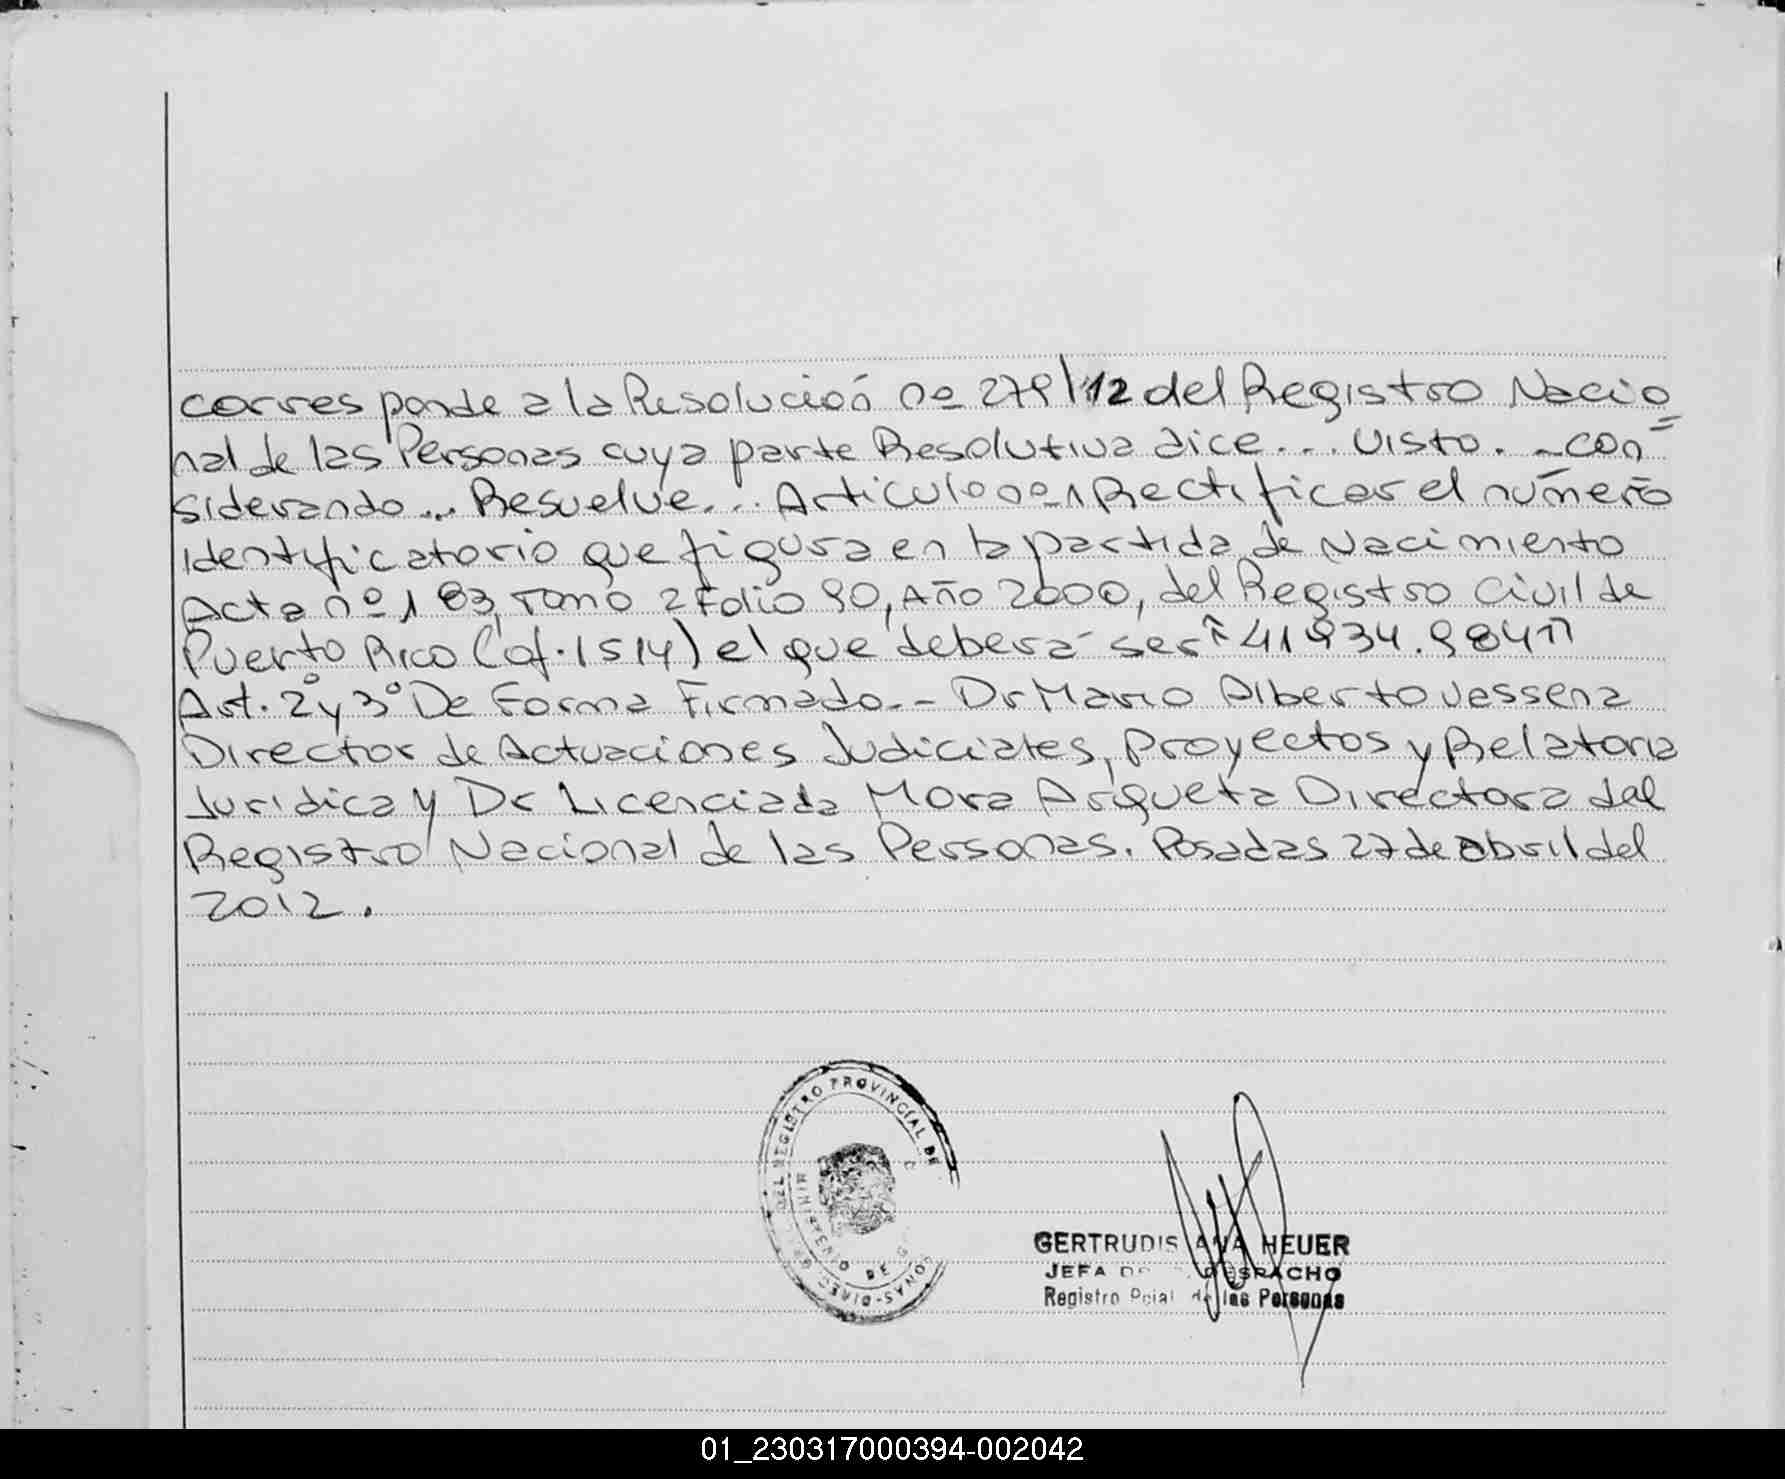 corresponde a la Resolución nº 279/12 del Registro Nacio=
nal de las Personas cuya parte Resolutiva dice... Visto. -con=
siderando... Resuelve... Articulo nº 1 Rectificar el número
identificatorio que figura en la partida de Nacimiento
Acta nº 183, Tomo 2 Folio 90, Año 2000, del Registro Civil de
Puerto Rico (of. 1514) el que deberá ser "41.934.984"
Art. 2º y 3º De Forma Firmado.- Dr Mario Alberto Jessena
Director de Actuaciones Judiciales, Proyectos y Relatoria
Juridica y Dr Licenciada Mora Arqueta Directora del
Registro Nacional de las Personas. Posadas 27 de abril del
2012.
DEL REGISTRO PROVINCIAL DE
GERTRUDIS ANA HEUER
JEFA DESPACHO
Registro Pcial de las Personas
01_230317000394-002042